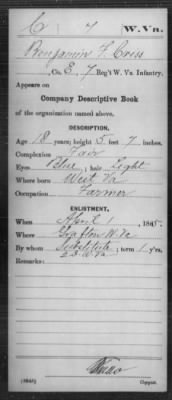 C 7 W. Va.
Benjamin F. Criss
, Co. E, 7 Reg't W. Va. Infantry.
Appears on
Company Descriptive Book
of the organization named above.
DESCRIPTION.
Age 18 years; height 5 feet 7 inches.
Complexion Fair
Eyes Blue; hair Light
Where born West Va
Occupation Farmer
ENLISTMENT.
When April 1, 1865.
Where Grafton W. Va
By whom ; term 1 y'rs.
Remarks: Substitute
Copyist.